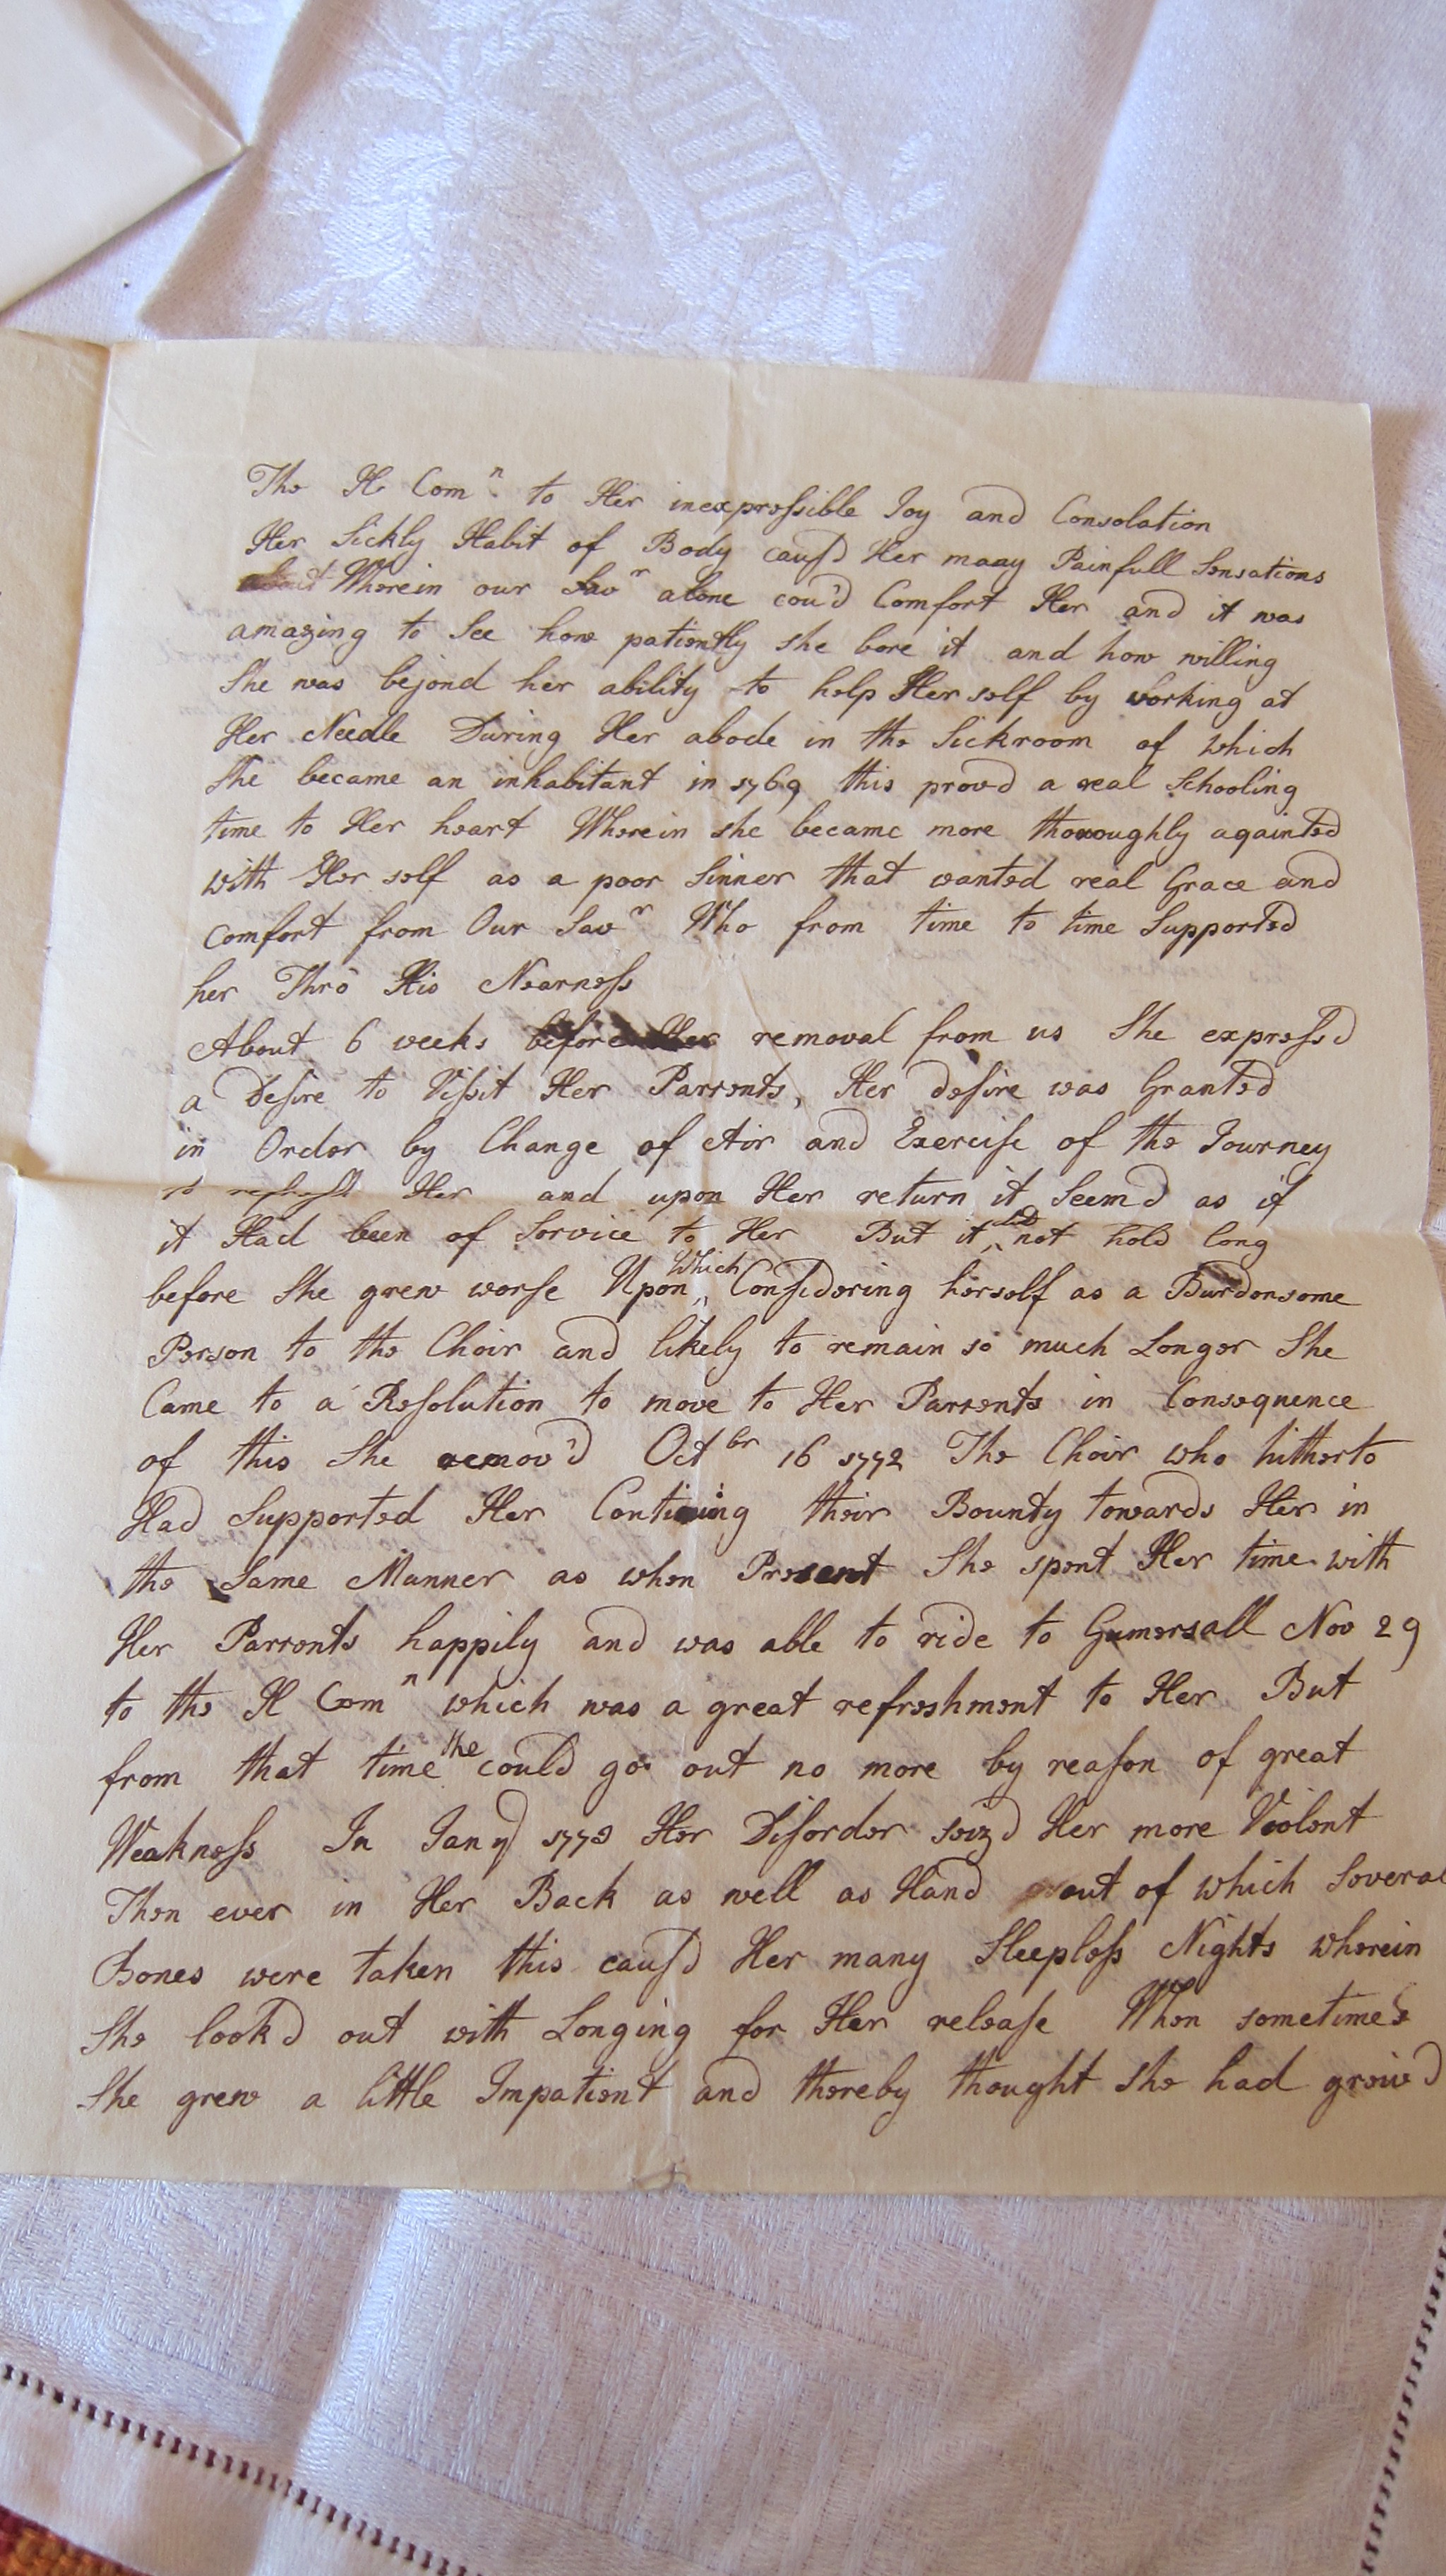 The H Comⁿ. to Her inexpressible Joy and Consolation
Her Sickly Habit of Body caus'd Her many Painfull Sensations
Wherein our Savʳ alone cou'd Comfort Her and it was
amazing to See how patiently she bore it and how willing
She was bejond her ability to help Her self by working at
Her Needle During Her abode in the Sickroom of Which
She became an inhabitant in 1769 this prov'd a real Schooling
time to Her heart Wherein she became more thoroughly aqainted
with Her self as a poor Sinner that wanted real Grace and
Comfort from Our Savʳ Who from time to time Supported
her Thro' His Nearness
About 6 weeks before Her removal from us She express'd
a Desire to Visit Her Parrents, Her desire was Granted
in Order by Change of Air and Exercise of the Journey
to Her and upon Her return it Seem'd as if
it Had been of Service to Her But it did not hold long
before She grew worse Upon Which Considering herself as a Burdensome
Person to the Choir and likely to remain so much Longer She
Came to a Resolution to move to Her Parrents in Consequence
of this She remov'd Octᵇʳ 16 1772 The Choir who hitherto
Had Supported Her Continuing their Bounty towards Her in
the Same Manner as when Present She spent Her time with
Her Parrents happily and was able to ride to Gumersall Nov 29
to the H Comⁿ which was a great refreshment to Her But
from that time She could go out no more by reason of great
Weakness In Jany 1773 Her Disorder seiz'd Her more Violent
Then ever in Her Back as well as Hand out of which Several
Bones were taken this caus'd Her many Sleepless Nights wherein
She look'd out with Longing for Her release When sometimes
She grew a little Impatient and thereby thought She had griev'd